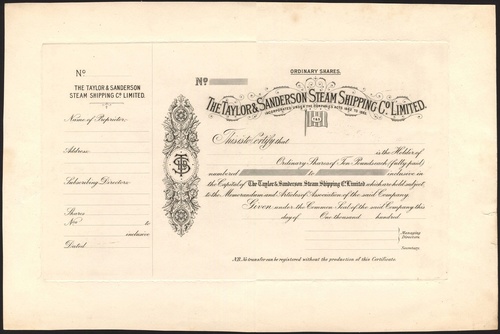 No
THE TAYLOR & SANDERSON
STEAM SHIPPING Co. LIMITED.
Name of Proprietor
Address
Subscribing Directors
Shares
Nos to
inclusive
Dated
ORDINARY SHARES.
No
THE TAYLOR & SANDERSON STEAM SHIPPING Co. LIMITED.
INCORPORATED UNDER THE COMPANIES ACTS 1862 TO
This is to Certify that
is the Holder of
Ordinary Shares of Ten Pounds each (fully paid)
numbered to inclusive in
the Capital of The Taylor & Sanderson Steam Shipping Co. Limited which are held subject
to the Memorandum and Articles of Association of the said Company.
Given under the Common Seal of the said Company this
day of One thousand hundred
Managing
Directors.
Secretary.
N.B. No transfer can be registered without the production of this Certificate.